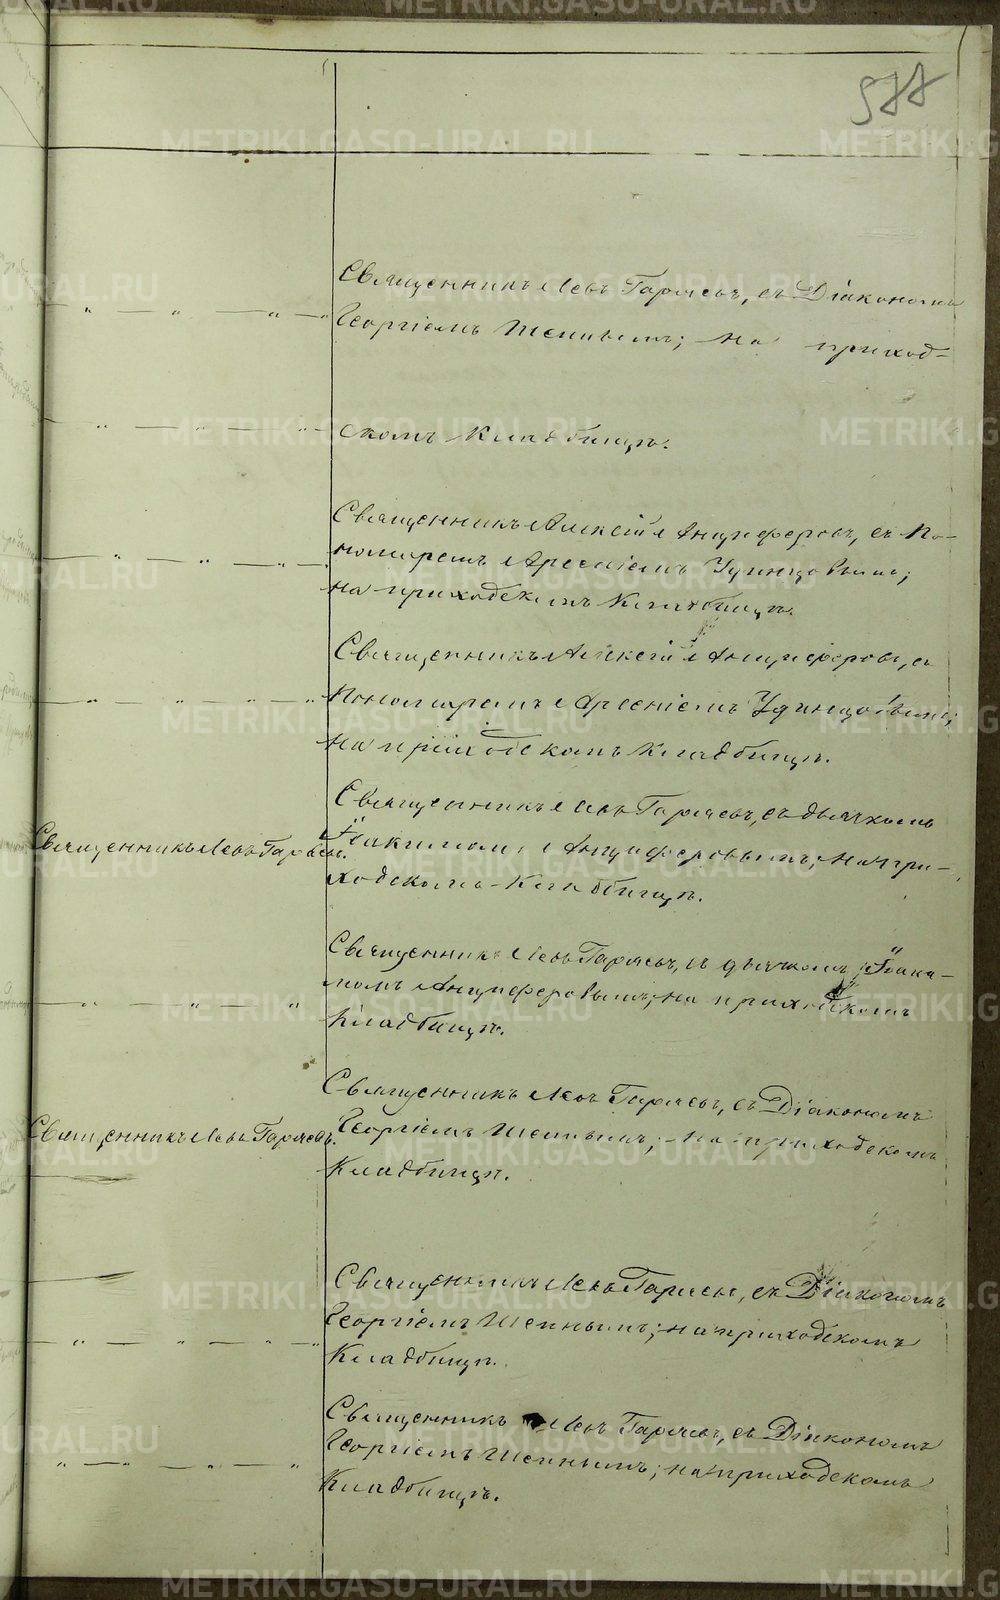 577
Священникъ Левъ Гаряевъ, съ Діакономъ
Георгіемъ Шеинымъ; на приход-
скомъ Кладбищѣ.
Священникъ Алексій Анциферовъ, съ По-
номаремъ Арсеніемъ Удинцовымъ;
на приходскомъ Кладбищѣ.
Священникъ Алексій Анциферовъ, съ
Пономаремъ Арсеніемъ Удинцовымъ;
на приходскомъ Кладбищѣ.
Священникъ Левъ Гаряевъ.
Священникъ Левъ Гаряевъ, съ дьячкомъ
Іоакимомъ Анциферовымъ; на при-
ходскомъ Кладбищѣ.
Священникъ Левъ Гаряевъ, съ дьячкомъ Іоаки-
момъ Анциферовымъ; на приходскомъ
Кладбищѣ.
Священникъ Левъ Гаряевъ.
Священникъ Левъ Гаряевъ, съ Діакономъ
Георгіемъ Шеинымъ; на приходскомъ
Кладбищѣ.
Священникъ Левъ Гаряевъ, съ Діакономъ
Георгіемъ Шеинымъ; на приходскомъ
Кладбищѣ.
Священникъ Левъ Гаряевъ, съ Діакономъ
Георгіемъ Шеинымъ; на приходскомъ
Кладбищѣ.
METRIKI.GASO-URAL.RU